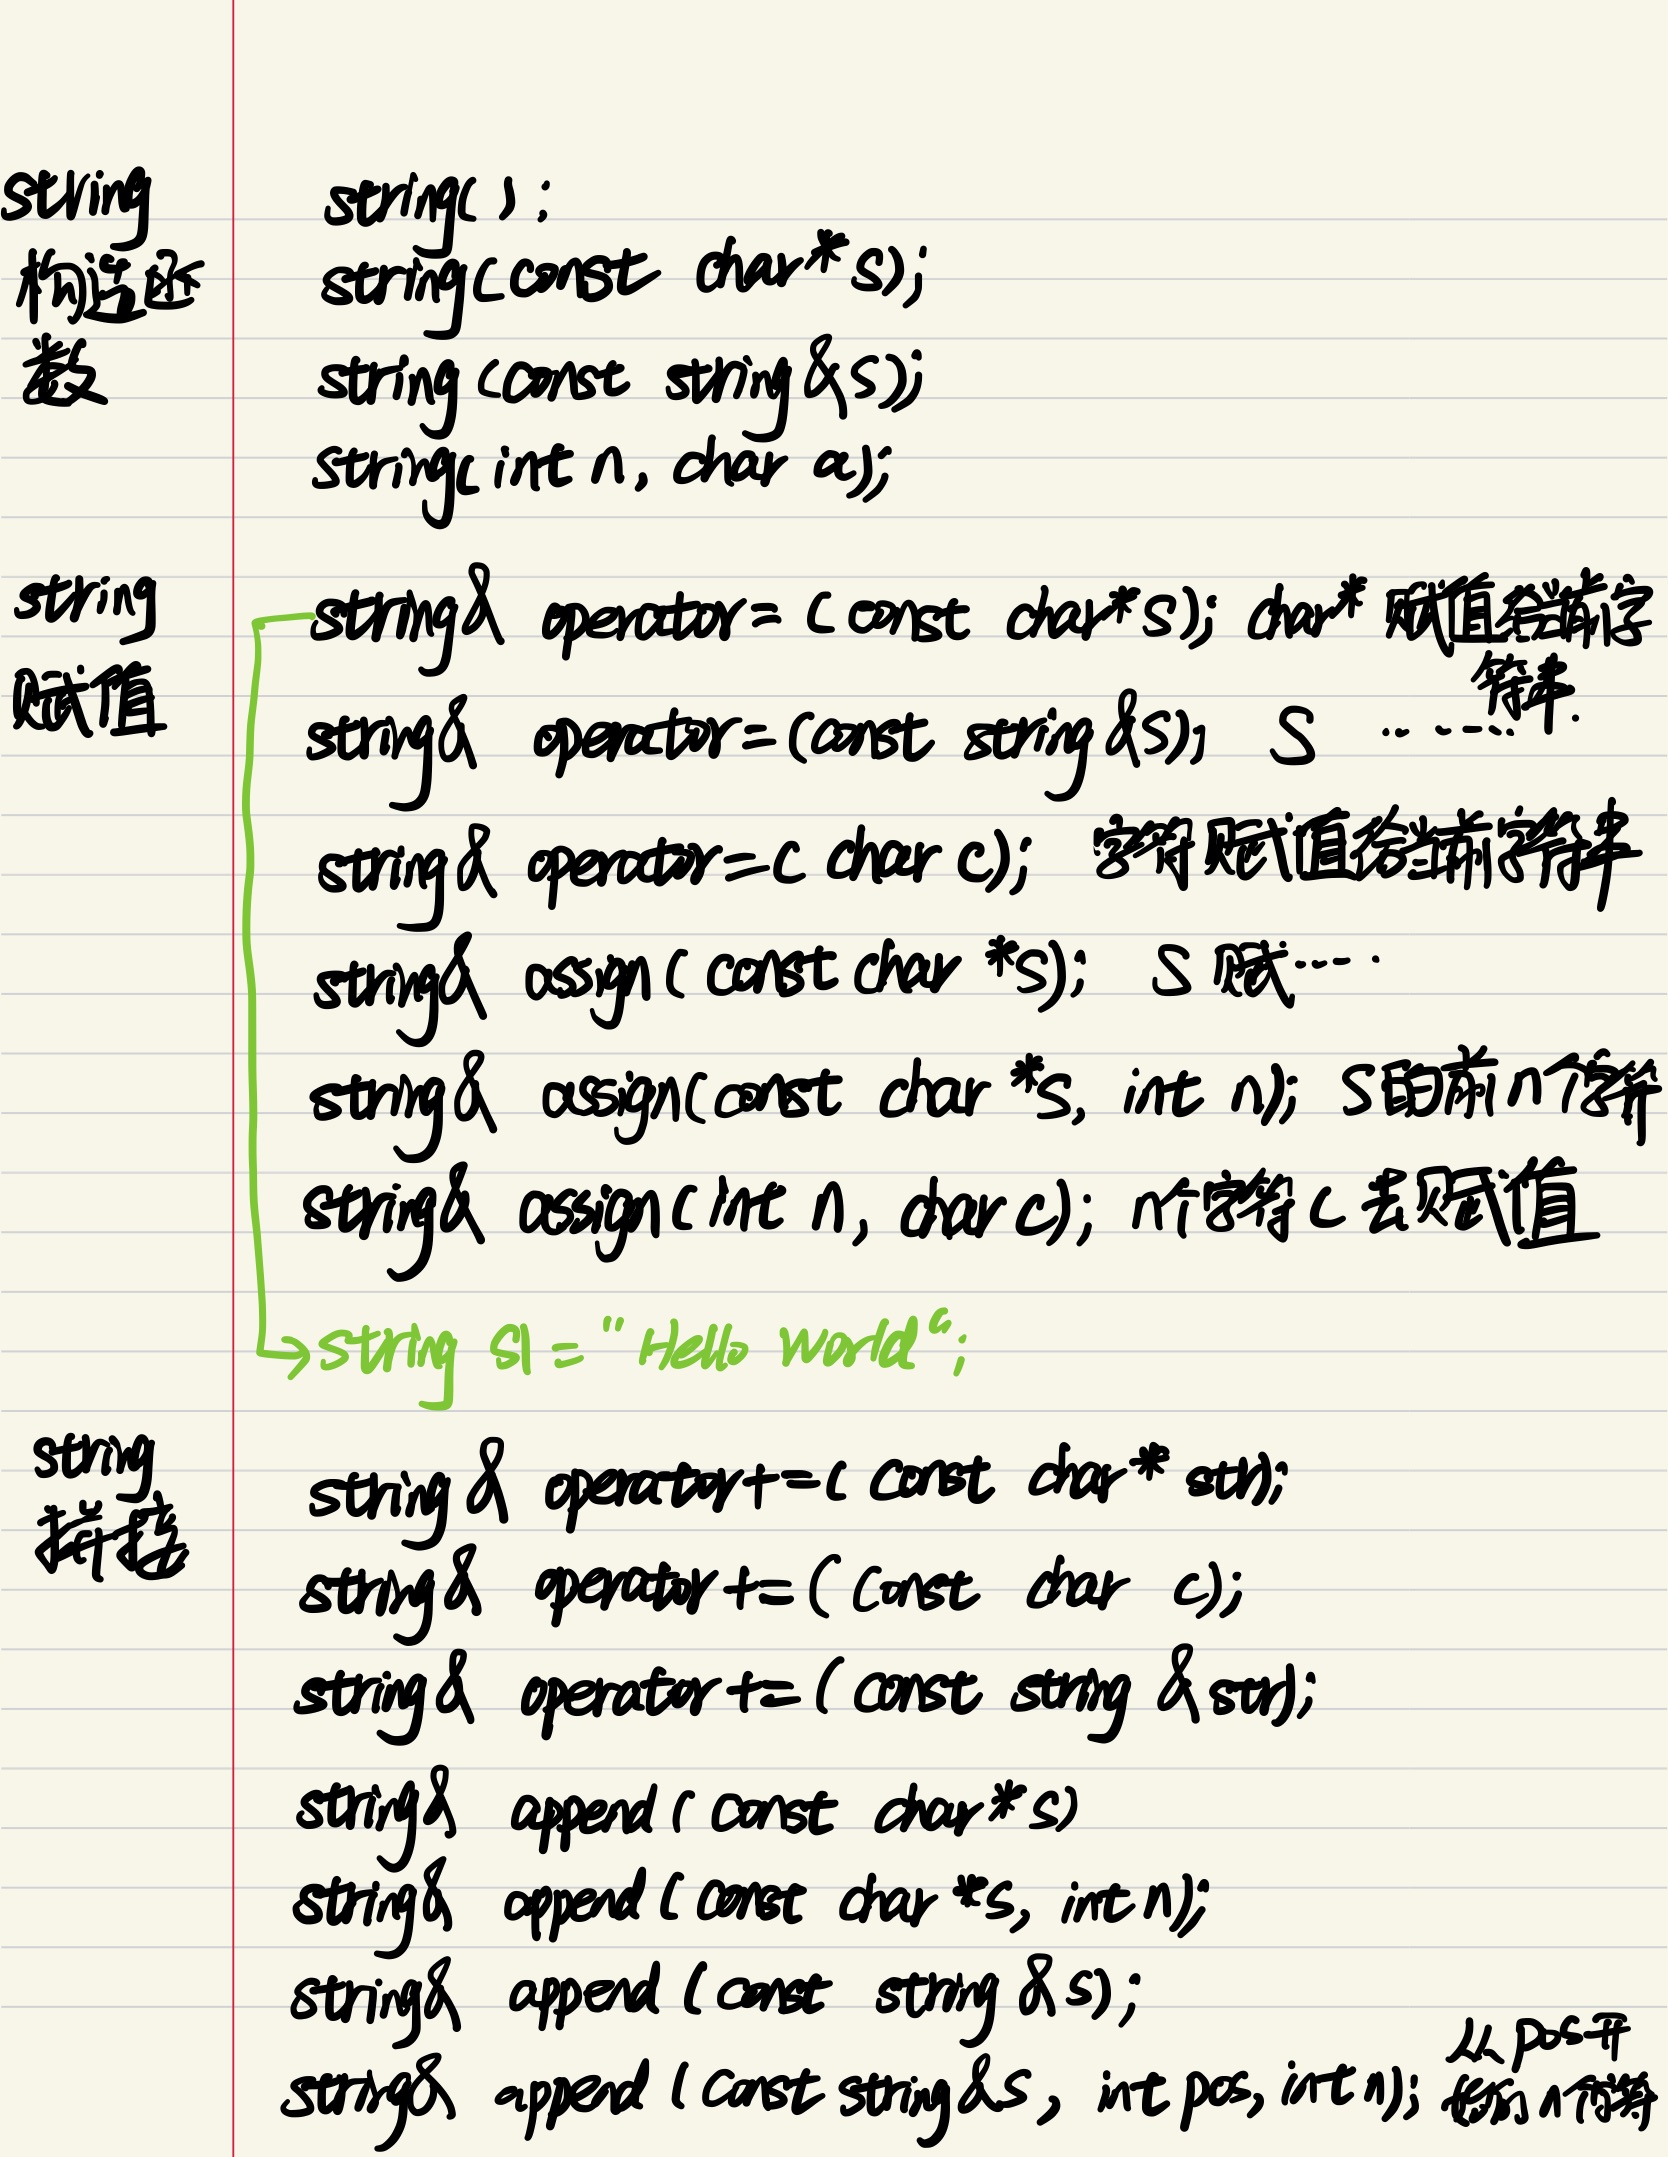 string
构造函
数
string():
string(const char* s);
string(const string &s);
string(int n, char a);
string
赋值
string& operator=(const char* s); char* 赋值给当前字
符串.
string& operator=(const string &s); S ·········
string& operator=(char c); 字符赋值给当前字符串
string& assign(const char *s); S 赋····
string& assign(const char *s, int n); S的前n个字符
string& assign(int n, char c); n个字符c去赋值
string s1 = "Hello World";
string
拼接
string& operator+=(const char* str);
string& operator+=(const char c);
string& operator+=(const string &str);
string& append(const char* s)
string& append(const char *s, int n);
string& append(const string &s);
string& append(const string &s, int pos, int n); 从pos开
始的n个字符